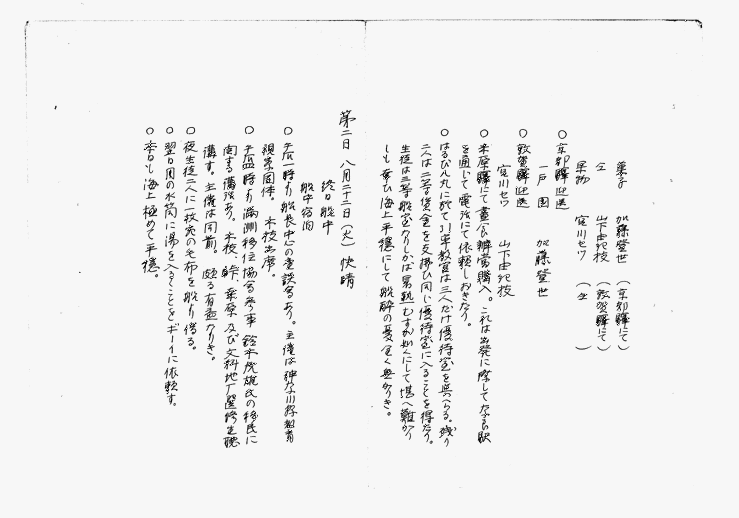 菓子 加藤登世 (京都驛にて)
仝 山下由紀枝 (敦賀驛にて)
果物 宮川セツ (仝)
○京都驛迎送
一戸 園 加藤登世
○敦賀驛迎送
宮川セツ 山下由紀枝
○米原驛にて晝食辨當購入。これは出発に際して奈良駅
を通じて電話にて依頼しおきたり。
○はるぴん丸に於て引率教官は三人だけ優待室を与へらる。残り
二人は二等賃金を支拂ひ同じ優待室に入ることを得たり。
生徒は三等船室なりしかば暑熱むすが如くにして堪へ難かり
しも幸ひ海上平穏にして船醉の憂全く無かりき。
第二日 八月二十二日(火) 快晴
終日船中
船中宿泊
○午后一時より船長中心の座談会あり。主催は神奈川縣教育
視察団体。木枝出席。
○午后一時より満洲移住協会参事 鈴木虎雄氏の移民に
関する講演あり。木枝、酔、桑原 及び文科地厂選修生聴
講す。主催は同前。頗る有益なりき。
○夜生徒二人に一枚宛の毛布を船より借る。
○翌日用の水筒に湯を入るゝことをボーイに依頼す。
○本日も海上極めて平穏。